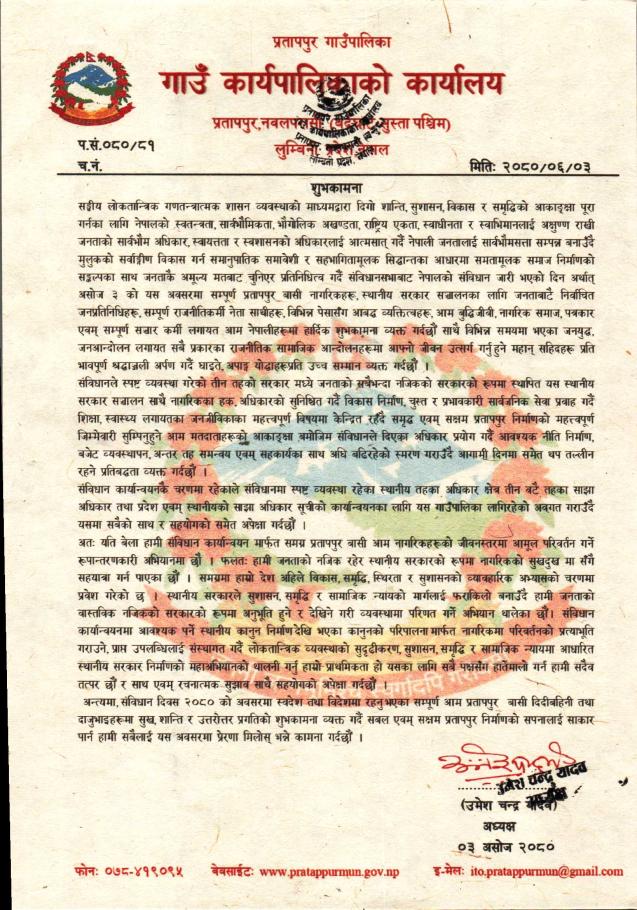 प्रतापपुर गाउँपालिका
गाउँ कार्यपालिकाको कार्यालय
प्रतापपुर,नवलपरासी (बर्दघाट सुस्ता पश्चिम)
लुम्बिनी प्रदेश, नेपाल
प.सं.०८०/८१
च.नं.
मितिः २०८०/०६/०३
शुभकामना
सङ्घीय लोकतान्त्रिक गणतन्त्रात्मक शासन व्यवस्थाको माध्यमद्वारा दिगो शान्ति, सुशासन, विकास र समृद्धिको आकाङ्क्षा पूरा
गर्नका लागि नेपालको स्वतन्त्रता, सार्वभौमिकता, भौगोलिक अखण्डता, राष्ट्रिय एकता, स्वाधीनता र स्वाभिमानलाई अक्षुण्ण राखी
जनताको सार्वभौम अधिकार, स्वायत्तता र स्वशासनको अधिकारलाई आत्मसात् गर्दै नेपाली जनतालाई सार्वभौमसत्ता सम्पन्न बनाउँदै
मुलुकको सर्वाङ्गीण विकास गर्न समानुपातिक समावेशी र सहभागितामूलक सिद्धान्तका आधारमा समतामूलक समाज निर्माणको
सङ्कल्पका साथ जनताकै अमूल्य मतबाट चुनिएर प्रतिनिधित्व गर्दै संविधानसभाबाट नेपालको संविधान जारी भएको दिन अर्थात्
असोज ३ को यस अवसरमा सम्पूर्ण प्रतापपुर बासी नागरिकहरू, स्थानीय सरकार सञ्चालनका लागि जनताबाटै निर्वाचित
जनप्रतिनिधिहरू, सम्पूर्ण राजनीतिकर्मी नेता साथीहरू, विभिन्न पेसासँग आबद्ध व्यक्तित्वहरू, आम बुद्धिजीवी, नागरिक समाज, पत्रकार
एवम् सम्पूर्ण सञ्चार कर्मी लगायत आम नेपालीहरूमा हार्दिक शुभकामना व्यक्त गर्दछौँ साथै विभिन्न समयमा भएका जनयुद्ध,
जनआन्दोलन लगायत सबै प्रकारका राजनीतिक सामाजिक आन्दोलनहरूमा आफ्नो जीवन उत्सर्ग गर्नुहुने महान् सहिदहरू प्रति
भावपूर्ण श्रद्धाञ्जली अर्पण गर्दै घाइते, अपाङ्ग योद्धाहरूप्रति उच्च सम्मान व्यक्त गर्दछौँ ।
संविधानले स्पष्ट व्यवस्था गरेको तीन तहको सरकार मध्ये जनताको सबैभन्दा नजिकको सरकारको रूपमा स्थापित यस स्थानीय
सरकार सञ्चालन साथै नागरिकका हक, अधिकारको सुनिश्चित गर्दै विकास निर्माण, चुस्त र प्रभावकारी सार्वजनिक सेवा प्रवाह गर्दै
शिक्षा, स्वास्थ्य लगायतका जनजीविकाका महत्त्वपूर्ण विषयमा केन्द्रित रहँदै समृद्ध एवम् सक्षम प्रतापपुर निर्माणको महत्त्वपूर्ण
जिम्मेवारी सुम्पिनुहुने आम मतदाताहरूको आकाङ्क्षा बमोजिम संविधानले दिएका अधिकार प्रयोग गर्दै आवश्यक नीति निर्माण,
बजेट व्यवस्थापन, अन्तर तह समन्वय एवम् सहकार्यका साथ अघि बढिरहेको स्मरण गराउँदै आगामी दिनमा समेत थप तल्लीन
रहने प्रतिबद्धता व्यक्त गर्दछौँ ।
संविधान कार्यान्वयनकै चरणमा रहेकाले संविधानमा स्पष्ट व्यवस्था रहेका स्थानीय तहका अधिकार क्षेत्र तीन वटै तहका साझा
अधिकार तथा प्रदेश एवम् स्थानीयको साझा अधिकार सूचीको कार्यान्वयनका लागि यस गाउँपालिका लागिरहेको अवगत गराउँदै
यसमा सबैको साथ र सहयोगको समेत अपेक्षा गर्दछौँ ।
अतः यति बेला हामी संविधान कार्यान्वयन मार्फत समग्र प्रतापपुर बासी आम नागरिकहरूको जीवनस्तरमा आमूल परिवर्तन गर्ने
रूपान्तरणकारी अभियानमा छौँ । फलतः हामी जनताको नजिक रहेर स्थानीय सरकारको रूपमा नागरिकको सुखदुख मा सँगै
सहयात्रा गर्न पाएका छौँ । समग्रमा हाम्रो देश अहिले विकास, समृद्धि, स्थिरता र सुशासनको व्यावहारिक अभ्यासको चरणमा
प्रवेश गरेको छ । स्थानीय सरकारले सुशासन, समृद्धि र सामाजिक न्यायको मार्गलाई फराकिलो बनाउँदै हामी जनताको
वास्तविक नजिकको सरकारको रूपमा अनुभूति हुने र देखिने गरी व्यवस्थामा परिणत गर्ने अभियान थालेका छौँ। संविधान
कार्यान्वयनमा आवश्यक पर्ने स्थानीय कानुन निर्माण देखि भएका कानुनको परिपालना मार्फत नागरिकमा परिवर्तनको प्रत्याभूति
गराउने, प्राप्त उपलब्धिलाई संस्थागत गर्दै लोकतान्त्रिक व्यवस्थाको सुदृढीकरण, सुशासन, समृद्धि र सामाजिक न्यायमा आधारित
स्थानीय सरकार निर्माणको महाअभियानको थालनी गर्नु हाम्रो प्राथमिकता हो यसका लागि सबै पक्षसँग हातेमालो गर्न हामी सदैव
तत्पर छौँ र साथ एवम् रचनात्मक सुझाव साथै सहयोगको अपेक्षा गर्दछौँ ।
अन्त्यमा, संविधान दिवस २०८० को अवसरमा स्वदेश तथा विदेशमा रहनुभएका सम्पूर्ण आम प्रतापपुर बासी दिदीबहिनी तथा
दाजुभाइहरूमा सुख, शान्ति र उत्तरोत्तर प्रगतिको शुभकामना व्यक्त गर्दै सबल एवम् सक्षम प्रतापपुर निर्माणको सपनालाई साकार
पार्न हामी सबैलाई यस अवसरमा प्रेरणा मिलोस् भन्ने कामना गर्दछौँ ।
उमेश चन्द्र यादव
अध्यक्ष
(उमेश चन्द्र यादव)
अध्यक्ष
०३ असोज २०८०
फोनः ०७८-४१९०९५ वेबसाईटः www.pratappurmun.gov.np इ-मेलः ito.pratappurmun@gmail.com